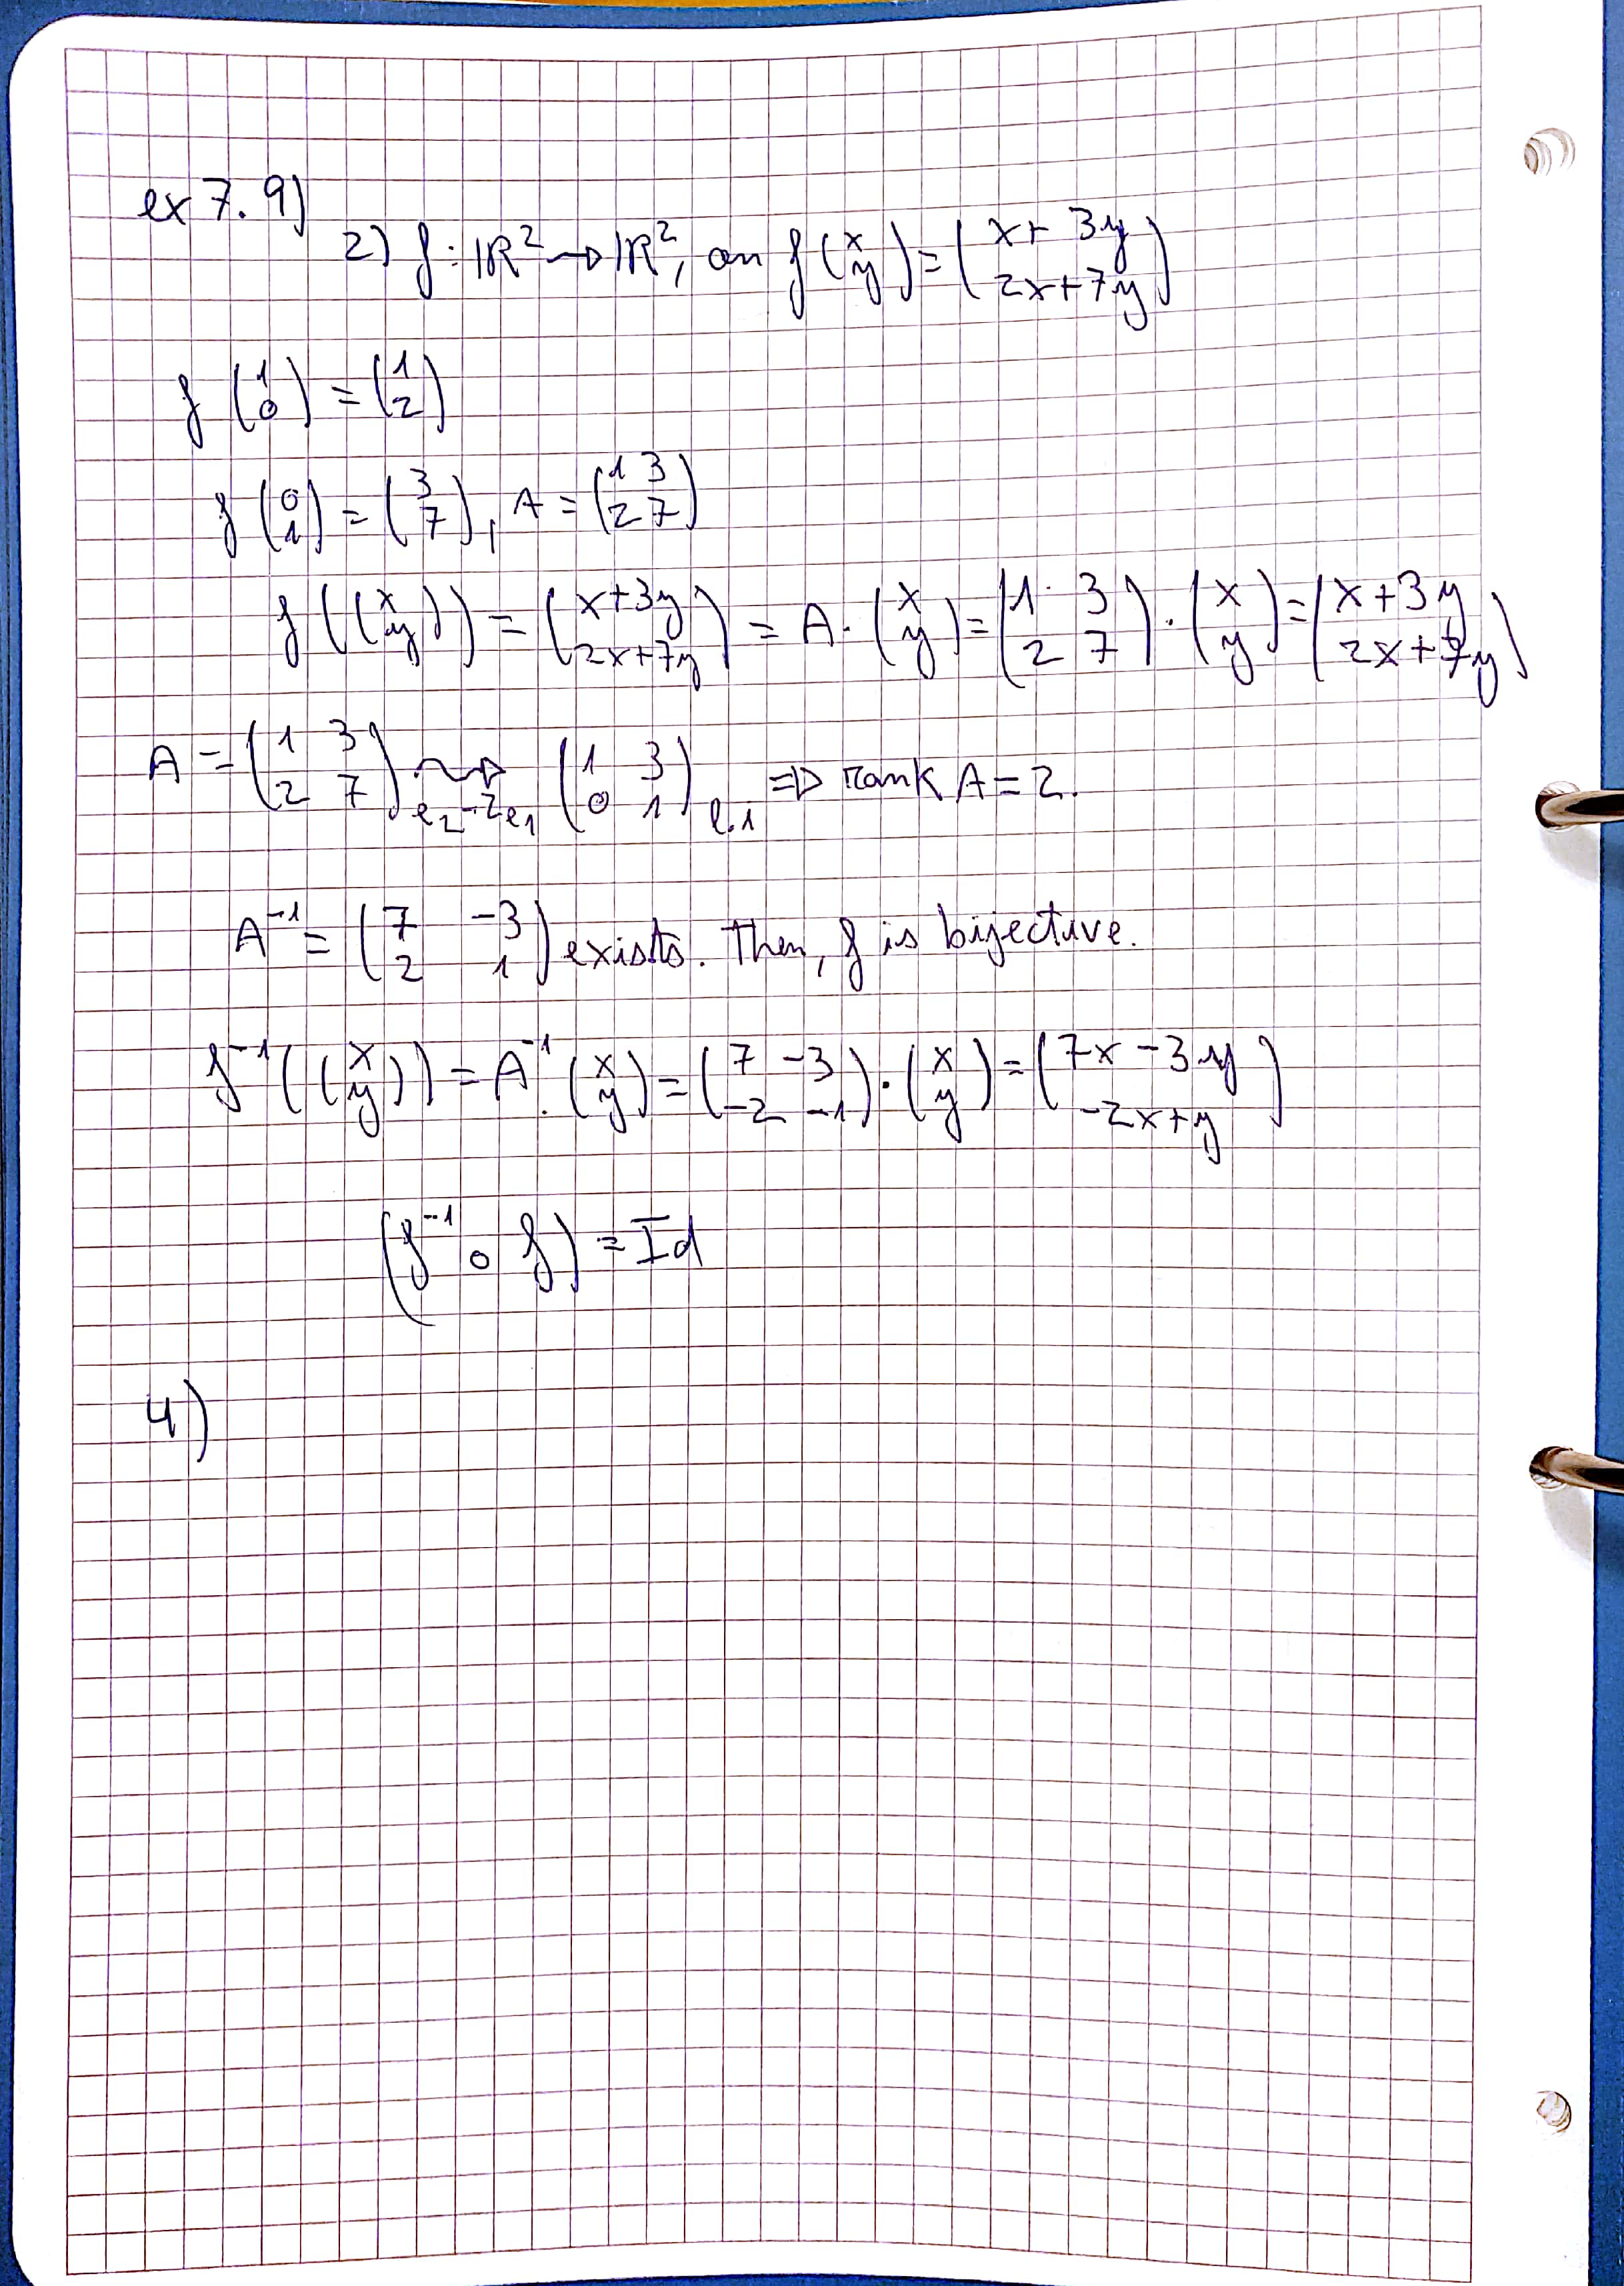 ex 7. 9)
2) f: ℝ² → ℝ², on f (x y) = (x+ 3y 2x+7y)
f (1 0) = (1 2)
f (0 1) = (3 7), A = (1 3 2 7)
f ((x y)) = (x+3y 2x+7y) = A · (x y) = (1 3 2 7) · (x y) = (x+3y 2x+7y)
A = (1 3 2 7) ⇝ e₂-2e₁ (1 3 0 1) l.i ⇒ rank A = 2.
A⁻¹ = (7 -3 2 1) exists. Then, f is bijective.
f⁻¹ ((x y)) = A⁻¹ · (x y) = (7 -3 -2 -1) · (x y) = (7x -3y -2x+y)
(f⁻¹ ∘ f) = Id
4)